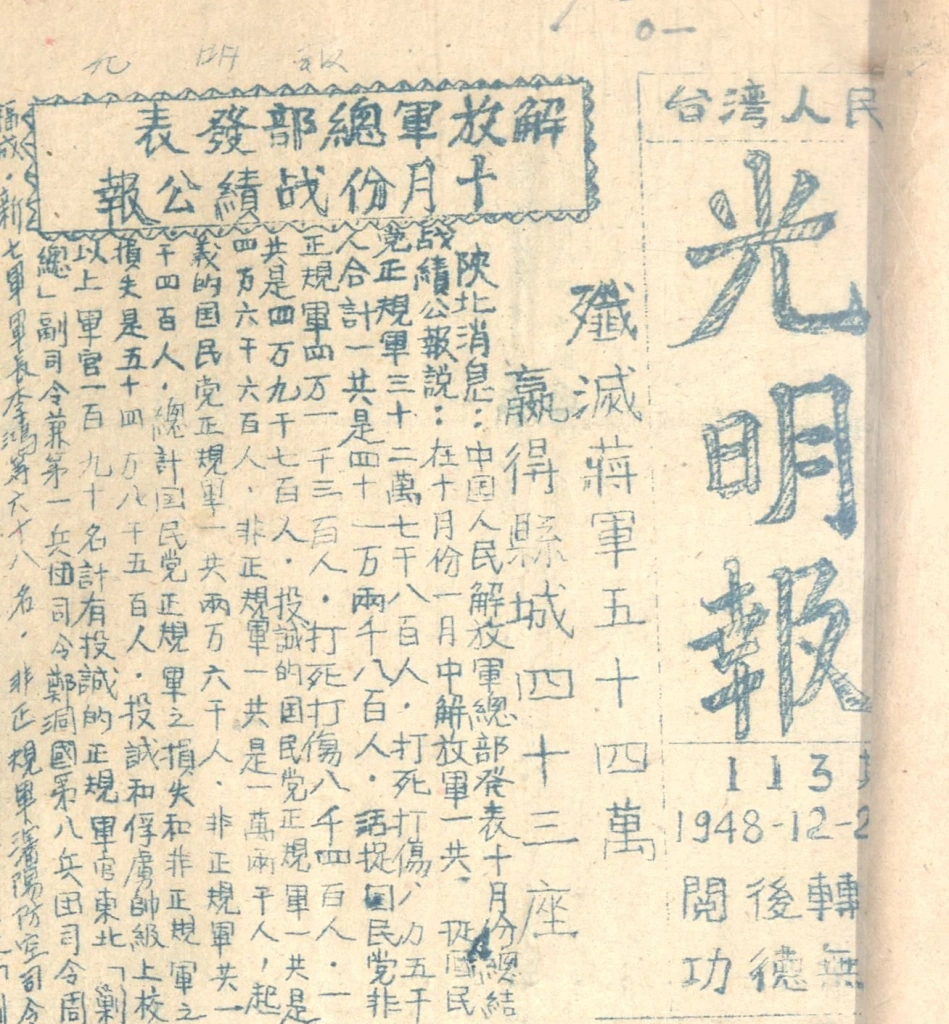 光明報
台湾人民
光明報
113
1948-12-2
閱後轉
功德無
殲滅蔣軍五十四萬
贏得縣城四十三座
解放軍總部發表
十月份战績公報
陝北消息：中国人民解放軍總部發表十月份總結
战績公報説：在十月份一月中解放軍一共
党正規軍三十二萬七千八百人．打死打傷八万五千
人合計一共是四十一万兩千八百人．活捉国民党非
正規軍四万一千三百人．打死打傷八千四百人．一
共是四万九千七百人．投誠的国民党正規軍一共是
四万六千六百人．非正規軍一共是一萬兩千人，起
義的国民党正規軍一共兩万六千人．非正規軍共一
千四百人．總計国民党正規軍之損失和非正規軍之
損失是五十四万八千五百人．投誠和俘虜帥級上校
以上軍官一百九十名計有投誠的正規軍官東北「剿
總」副司令兼第一兵団司令鄭洞國第八兵団司令周
福成．新七軍軍長李鴻等六十八名．非正規軍瀋陽防空司令